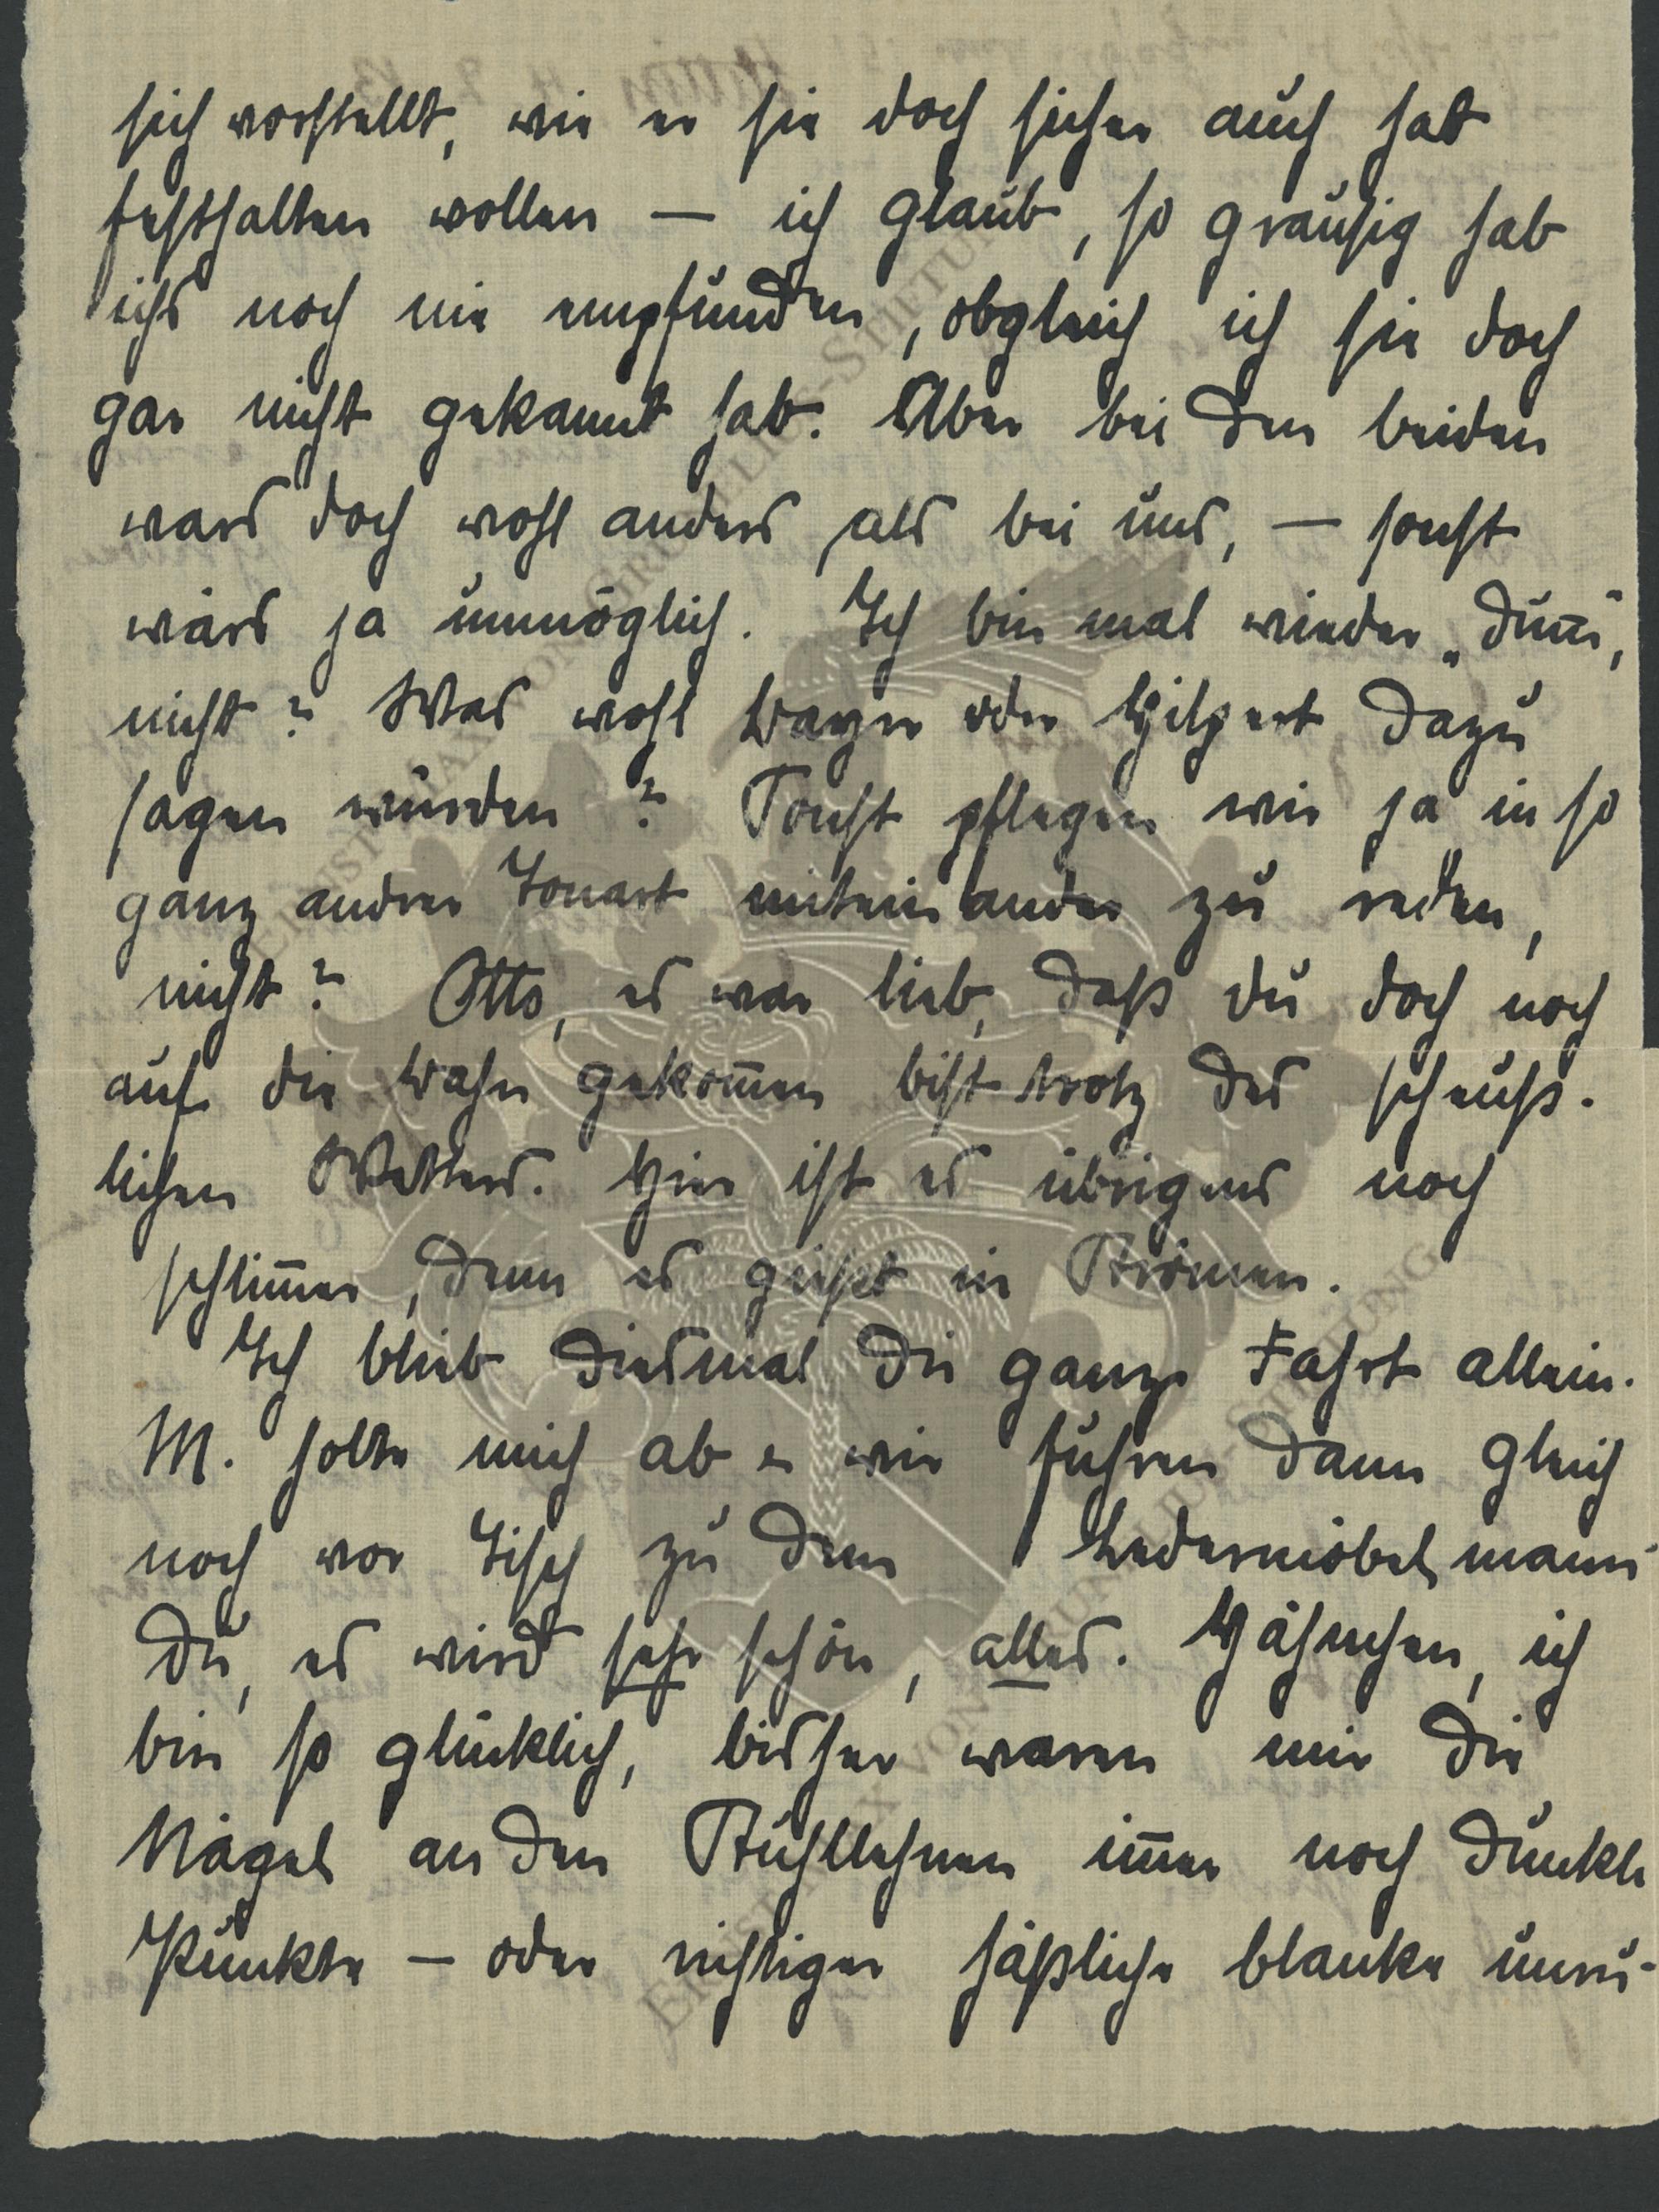 sich vorstellt, wie er sie doch sicher auch hat
festhalten wollen — ich glaub, so grausig hab
ichs noch nie empfunden, obgleich ich sie doch
gar nicht gekannt hab. Aber bei den beiden
wars doch wohl anders, als bei uns, — sonst
wärs ja unmöglich. Ich bin mal wieder „dum̄",
nicht? Was wohl oder Hilpert dazu
sagen würden? Sonst pflegen wir ja in so
ganz andrer Tonart miteinander zu reden,
nicht? Otto, es war lieb, daß du doch noch
auf die Bahn gekom̄en bist trotz des scheuß-
lichen Wetters. Hier ist es übrigens noch
schlim̄er, denn es gießt in Strömen.
Ich blieb diesmal die ganze Fahrt allein.
M. holte mich ab u wir fuhren dann gleich
noch vor Tisch zu dem Ledermöbelmann
Du, es wird sehr schön, alles. Hähnchen, ich
bin so glücklich, bisher waren mir die
Nägel an den Stuhllehnen im̄er noch dunkle
Punkte — oder richtiger häßliche blanke unru-